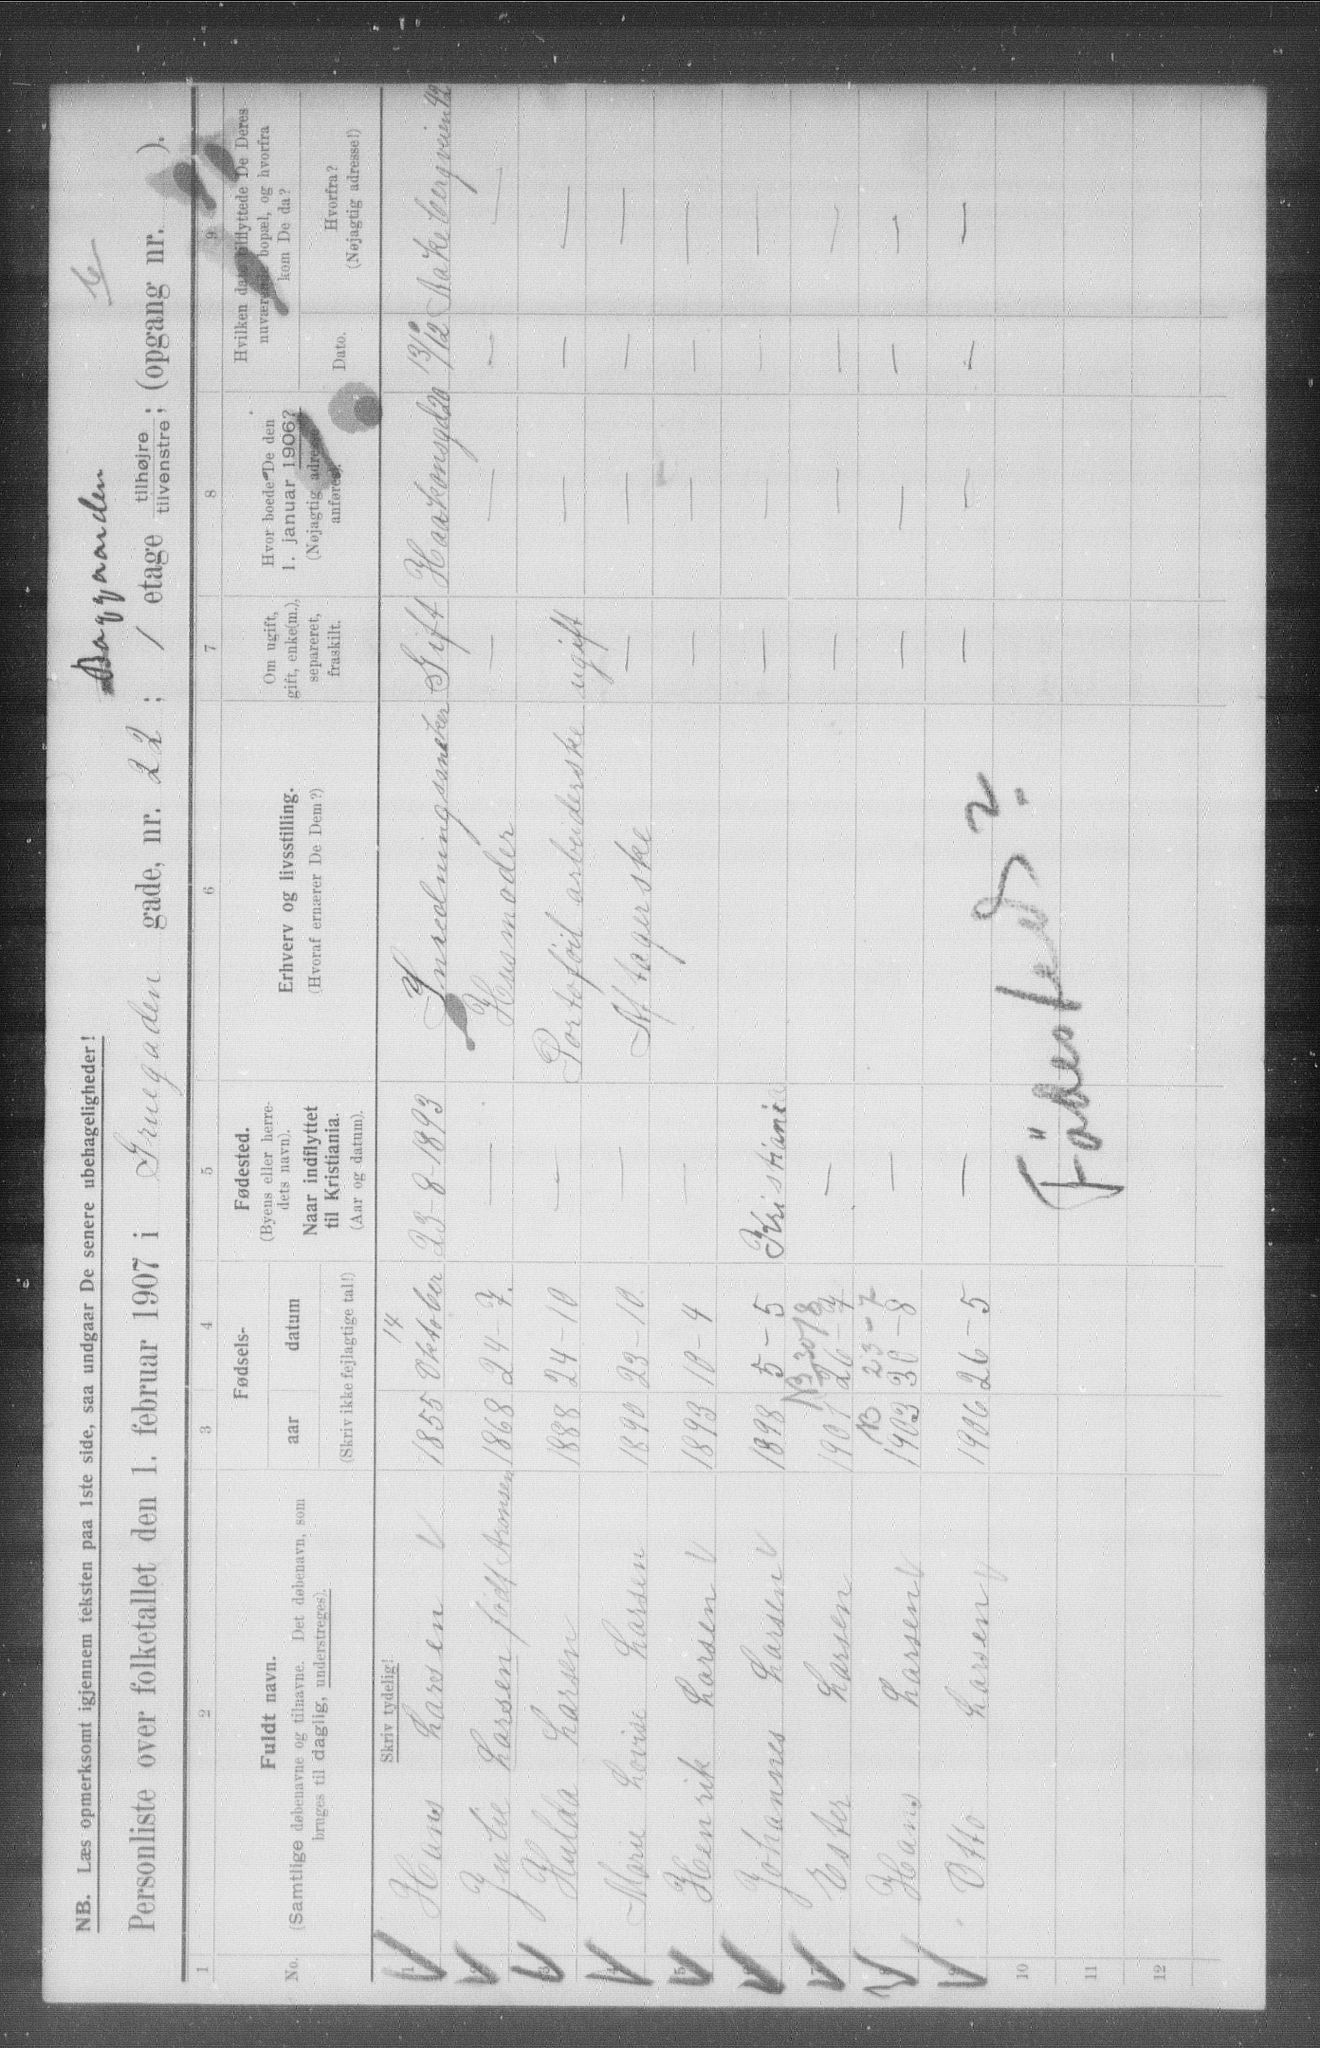 NB. Læs opmerksomt igjennem teksten paa 1ste side, saa undgaar De senere ubehageligheder!
Baggaarden
Personliste over folketallet den 1. februar 1907 i Gruegaden gade, nr. 22; 1 etage tilhøjre / tilvenstre; (opgang nr. ).
1 2 3 4 5 6 7 8 9
No.
Fuldt navn.
(Samtlige døbenavne og tilnavne. Det døbenavn, som
bruges til daglig, understreges).
Fødsels-
aar datum
(Skriv ikke fejlagtige tal!)
Fødested.
(Byens eller herre-
dets navn).
Naar indflyttet
til Kristiania.
(Aar og datum).
Erhverv og livsstilling.
(Hvoraf ernærer De Dem?)
Om ugift,
gift, enke(m.),
separeret,
fraskilt.
Hvor boede De den
1. januar 1906?
(Nøjagtig adresse
anføres).
Hvilken dato tilflyttede De Deres
nuværende bopæl, og hvorfra
kom De da?
Dato.
Hvorfra?
(Nøjagtig adresse!)
Skriv tydelig!
1 Hans Larsen 1855 14 Oktober 23-8-1893 Gift Haakonsgd 20 13/12 Aakebergveien 42
2 Julie Larsen født Aronsen 1868 24-7. — Husmoder — — — —
3 Hulda Larsen 1888 24-10 — Portoføil arbeiderske ugift — — —
4 Marie Lovise Larsen 1890 23-10. — Aftagerske — — — —
5 Henrik Larsen 1893 10-4 — — — — —
6 Johannes Larsen 1898 5-5 Kristiania — — — —
7 Ester Larsen 1901 26-7 — — — — —
8 Hans Larsen 1903 30-8 B 23-7 — — — — —
9 Otto Larsen 1906 26-5 — — — — —
10
11
12
Födested?